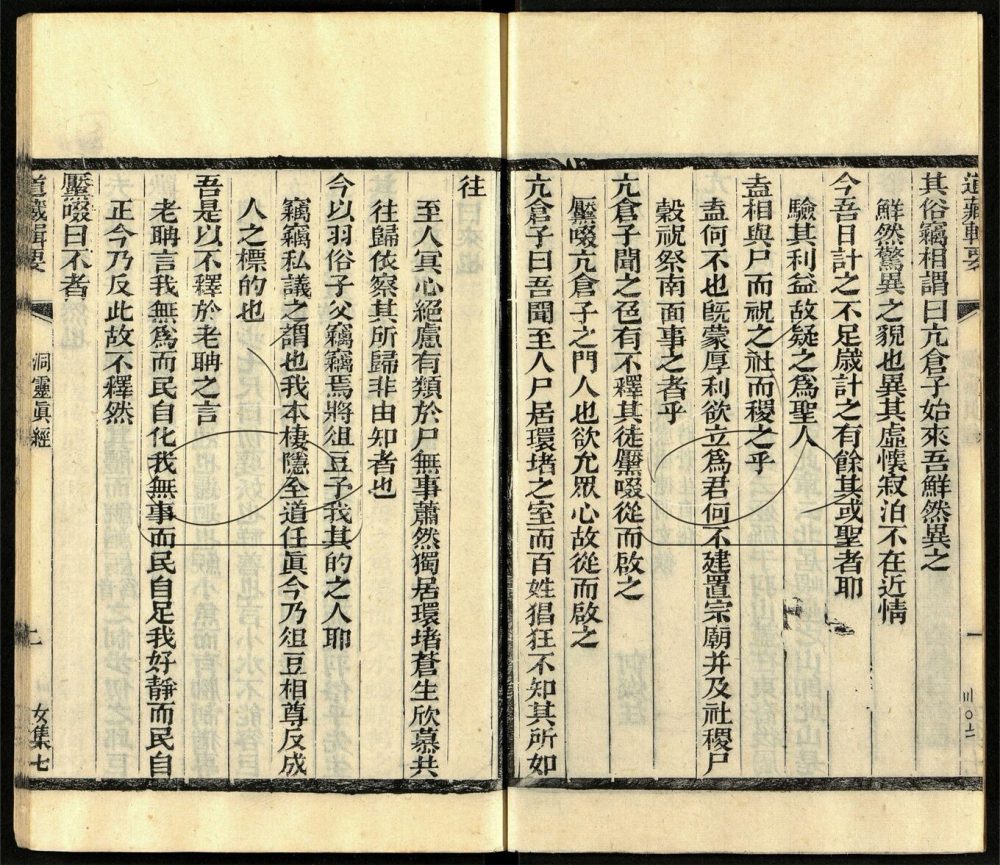 道藏輯要
一
其俗竊相謂曰亢倉子始來吾鮮然異之
鮮然驚異之貌也異其虛懷寂泊不在近情
今吾日計之不足歲計之有餘其或聖者耶
驗其利益故疑之爲聖人
盍相與尸而祝之社而稷之乎
盍何不也旣蒙厚利欲立爲君何不建置宗廟并及社稷尸
穀祝祭南面事之者乎
亢倉子聞之色有不釋其徒䵴啜從而啟之
䵴啜亢倉子之門人也欲允眾心故從而啟之
亢倉子曰吾聞至人尸居環堵之室而百姓猖狂不知其所如
往
至人冥心絕慮有類於尸無事蕭然獨居環堵蒼生欣慕共
往歸依察其所歸非由知者也
今以羽俗子父竊竊焉將俎豆予我其的之人耶
竊竊私議之謂也我本棲隱全道任眞今乃俎豆相尊反成
人之標的也
吾是以不釋於老聃之言
老聃言我無爲而民自化我無事而民自足我好靜而民自
正今乃反此故不釋然
䵴啜曰不者
道藏輯要
洞靈眞經
二
女集七